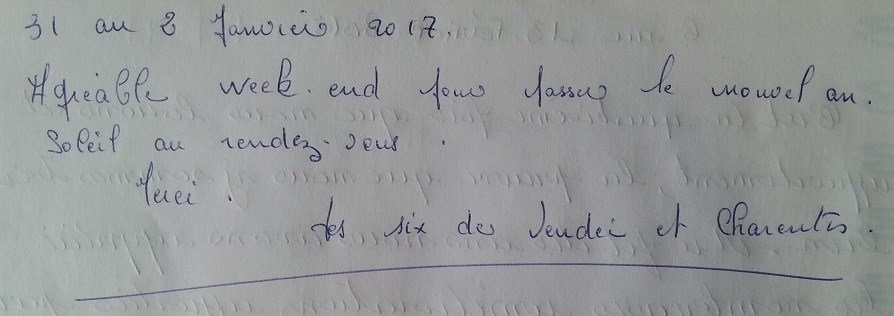 31 au 2 Janvier 2017.
Agréable week-end pour passer le nouvel an.
Soleil au rendez-vous.
Merci.
Les six de Vendée et Charentes.